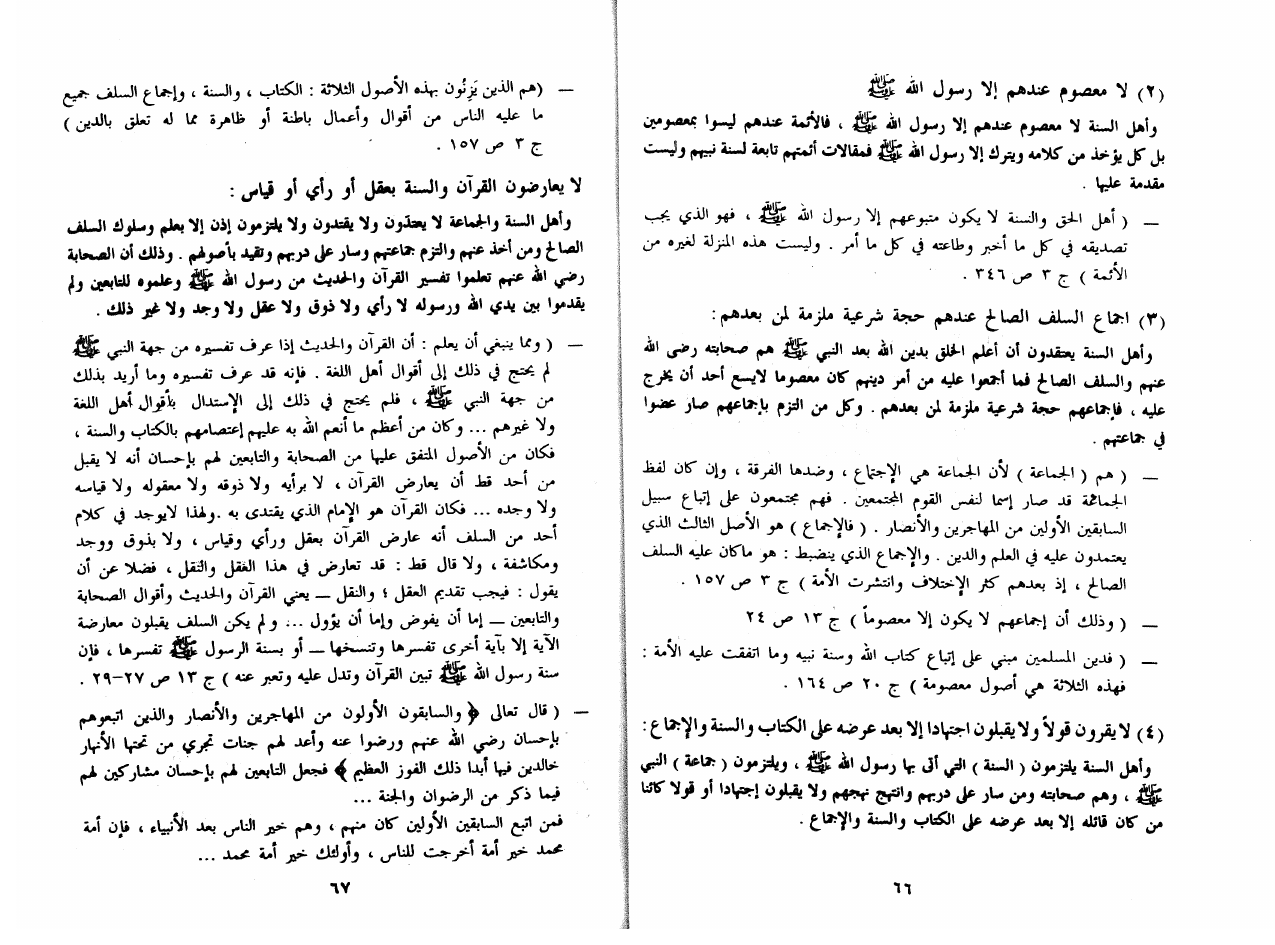 (٢) لا معصوم عندهم إلا رسول الله ﷺ
وأهل السنة لا معصوم عندهم إلا رسول الله ﷺ ، فالأئمة عندهم ليسوا بمعصومين
بل كل يؤخذ من كلامه ويترك إلا رسول الله ﷺ فمقالات أئمتهم تابعة لسنة نبيهم وليست
مقدمة عليها .
— ( أهل الحق والسنة لا يكون متبوعهم إلا رسول الله ﷺ ، فهو الذي يجب
تصديقه في كل ما أخبر وطاعته في كل ما أمر . وليست هذه المنزلة لغيره من
الأئمة ) ج ٣ ص ٣٤٦ .
(٣) اجماع السلف الصالح عندهم حجة شرعية ملزمة لمن بعدهم :
وأهل السنة يعتقدون أن أعلم الخلق بدين الله بعد النبي ﷺ هم صحابته رضى الله
عنهم والسلف الصالح فما أجمعوا عليه من أمر دينهم كان معصوما لايسع أحد أن يخرج
عليه ، فإجماعهم حجة شرعية ملزمة لمن بعدهم . وكل من التزم بإجماعهم صار عضوا
في جماعتهم .
— ( هم ( الجماعة ) لأن الجماعة هي الإجتماع ، وضدها الفرقة ، وإن كان لفظ
الجماعة قد صار إسما لنفس القوم المجتمعين . فهم مجتمعون على إتباع سبيل
السابقين الأولين من المهاجرين والأنصار . ( فالإجماع ) هو الأصل الثالث الذي
يعتمدون عليه في العلم والدين . والإجماع الذي ينضبط : هو ماكان عليه السلف
الصالح ، إذ بعدهم كثر الإختلاف وانتشرت الأمة ) ج ٣ ص ١٥٧ .
— ( وذلك أن إجماعهم لا يكون إلا معصوماً ) ج ١٣ ص ٢٤
— ( فدين المسلمين مبني على إتباع كتاب الله وسنة نبيه وما اتفقت عليه الأمة :
فهذه الثلاثة هي أصول معصومة ) ج ٢٠ ص ١٦٤ .
(٤) لا يقرون قولاً ولا يقبلون اجتهادا إلا بعد عرضه على الكتاب والسنة والإجماع :
وأهل السنة يلتزمون ( السنة ) التي أتى بها رسول الله ﷺ ، ويلتزمون ( جماعة ) النبي
ﷺ ، وهم صحابته ومن سار على دربهم وانتهج نهجهم ولا يقبلون إجتهادا أو قولا كائنا
من كان قائله إلا بعد عرضه على الكتاب والسنة والإجماع .
٦٦
— (هم الذين يَزِنُون بهذه الأصول الثلاثة : الكتاب ، والسنة ، وإجماع السلف جميع
ما عليه الناس من أقوال وأعمال باطنة أو ظاهرة مما له تعلق بالدين )
ج ٣ ص ١٥٧ .
لا يعارضون القرآن والسنة بعقل أو رأي أو قياس :
وأهل السنة والجماعة لا يعتقدون ولا يقتدون ولا يلتزمون إذن إلا بعلم وسلوك السلف
الصالح ومن أخذ عنهم والتزم جماعتهم وسار على دربهم وتقيد بأصولهم . وذلك أن الصحابة
رضي الله عنهم تعلموا تفسير القرآن والحديث من رسول الله ﷺ وعلموه للتابعين ولم
يقدموا بين يدي الله ورسوله لا رأي ولا ذوق ولا عقل ولا وجد ولا غير ذلك .
— ( ومما ينبغي أن يعلم : أن القرآن والحديث إذا عرف تفسيره من جهة النبي ﷺ
لم يحتج في ذلك إلى أقوال أهل اللغة . فإنه قد عرف تفسيره وما أريد بذلك
من جهة النبي ﷺ ، فلم يحتج في ذلك إلى الإستدال بأقوال أهل اللغة
ولا غيرهم ... وكان من أعظم ما أنعم الله به عليهم إعتصامهم بالكتاب والسنة ،
فكان من الأصول المتفق عليها من الصحابة والتابعين لهم بإحسان أنه لا يقبل
من أحد قط أن يعارض القرآن ، لا برأيه ولا ذوقه ولا معقوله ولا قياسه
ولا وجده ... فكان القرآن هو الإمام الذي يقتدى به .ولهذا لايوجد في كلام
أحد من السلف أنه عارض القرآن بعقل ورأي وقياس ، ولا بذوق ووجد
ومكاشفة ، ولا قال قط : قد تعارض في هذا الغقل والنقل ، فضلا عن أن
يقول : فيجب تقديم العقل ؛ والنقل — يعني القرآن والحديث وأقوال الصحابة
والتابعين — إما أن يفوض وإما أن يؤول ... ولم يكن السلف يقبلون معارضة
الآية إلا بآية أخرى تفسرها وتنسخها — أو بسنة الرسول ﷺ تفسرها ، فإن
سنة رسول الله ﷺ تبين القرآن وتدل عليه وتعبر عنه ) ج ١٣ ص ٢٧-٢٩ .
— ( قال تعالى ﴿ والسابقون الأولون من المهاجرين والأنصار والذين اتبعوهم
بإحسان رضي الله عنهم ورضوا عنه وأعد لهم جنات تجري من تحتها الأنهار
خالدين فيها أبدا ذلك الفوز العظيم ﴾ فجعل التابعين لهم بإحسان مشاركين لهم
فيما ذكر من الرضوان والجنة ...
فمن اتبع السابقين الأولين كان منهم ، وهم خير الناس بعد الأنبياء ، فإن أمة
محمد خير أمة أخرجت للناس ، وأولئك خير أمة محمد ...
٦٧